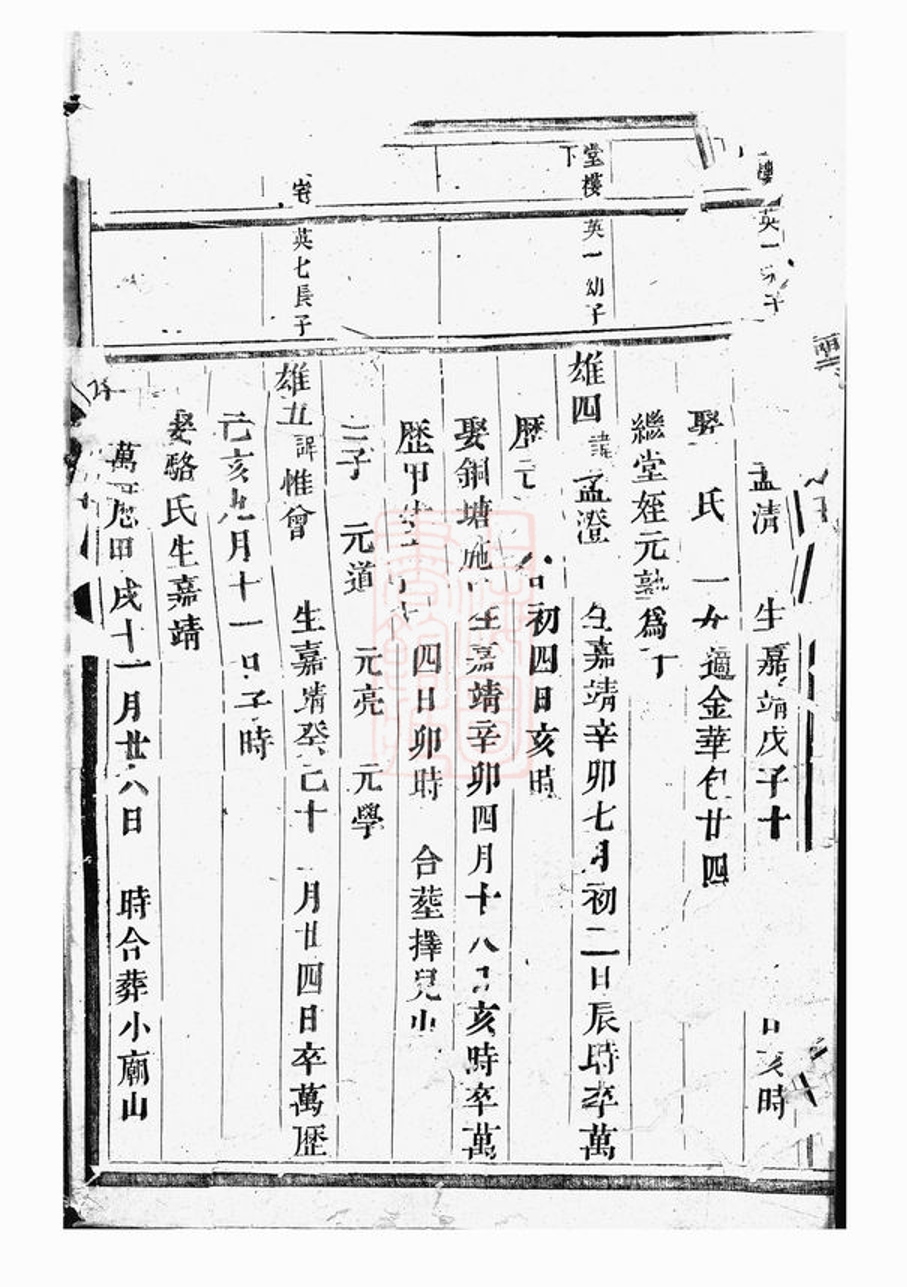 樓
英一 子
孟清 生嘉靖戊子十 日亥時
娶 氏 一女適金華包廿四
繼堂姪元熟爲
堂樓下
英一幼子
雄四 諱孟澄 生嘉靖辛卯七月初二日辰時卒萬
歷元 初四日亥時
娶銅塘施 生嘉靖辛卯四月十八日亥時卒萬
歷甲 四日卯時 合葬擇兒山
三子 元道 元亮 元學
宅
英七長子
雄五 諱惟曾 生嘉靖癸巳十 月廿四日卒萬歷
己亥九月十一日子時
娶駱氏生嘉靖
萬歷甲戌十一月廿六日 時合葬小廟山